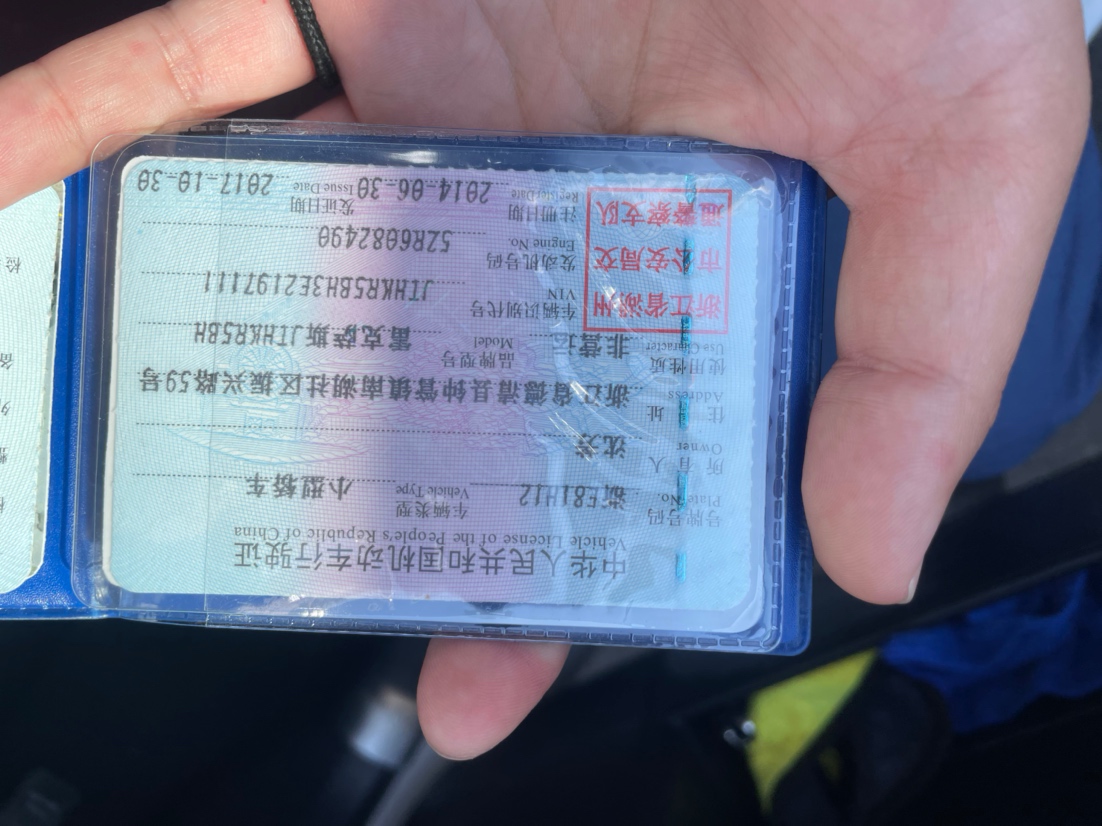 中华人民共和国机动车行驶证
Vehicle License of the People's Republic of China
号牌号码 Plate No. 浙E81H12 车辆类型 Vehicle Type 小型轿车
所有人 Owner 沈芳
住址 Address 浙江省德清县钟管镇南湖社区振兴路59号
使用性质 Use Character 非营运 品牌型号 Model 雷克萨斯JTHKR5BH
车辆识别代号 VIN JTHKR5BH3E2197111
发动机号码 Engine No. 5ZR6082490
注册日期 Register Date 2014-06-30 发证日期 Issue Date 2017-10-30
浙江省湖州
市公安局交
通警察支队